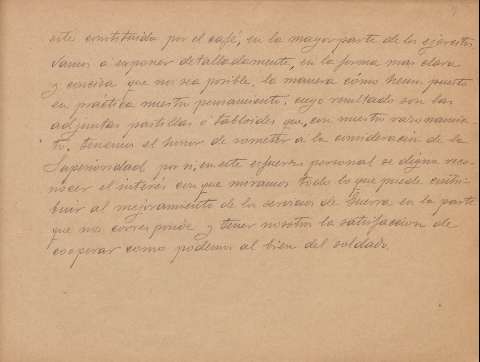 este constituida por el café, en la mayor parte de los ejercitos
Vamos a exponer detalladamente, en la forma mas clara
y concisa que nos sea posible, la manera cómo hemos puesto
en práctica nuestro pensamiento, cuyo resultado son las
adjuntas pastillas o tabloides que, con nuestro razonamien
to, tenemos el honor de someter á la consideración de la
Superioridad por si, en este esfuerzo personal se digna reco-
nocer el interés con que miramos todo lo que puede contri-
buir al mejoramiento de los servicios de Guerra en la parte
que nos corresponde y tener nosotros la satisfaccion de
cooperar como podemos al bien del soldado.